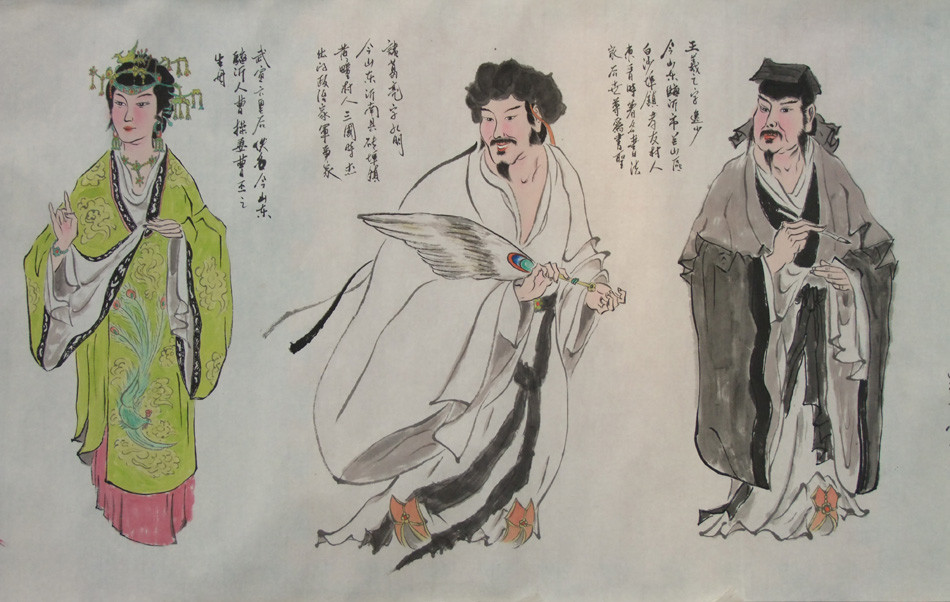 王羲之字逸少
今山东臨沂市兰山區
白沙埠镇孝友村人
东晋時著名書法
家后世尊為書聖
諸葛亮字孔明
今山东沂南县砖埠镇
黄疃村人三國時杰
出的政治家軍事家
武宣卞皇后 今山东
臨沂人曹操妻曹丕之
生母